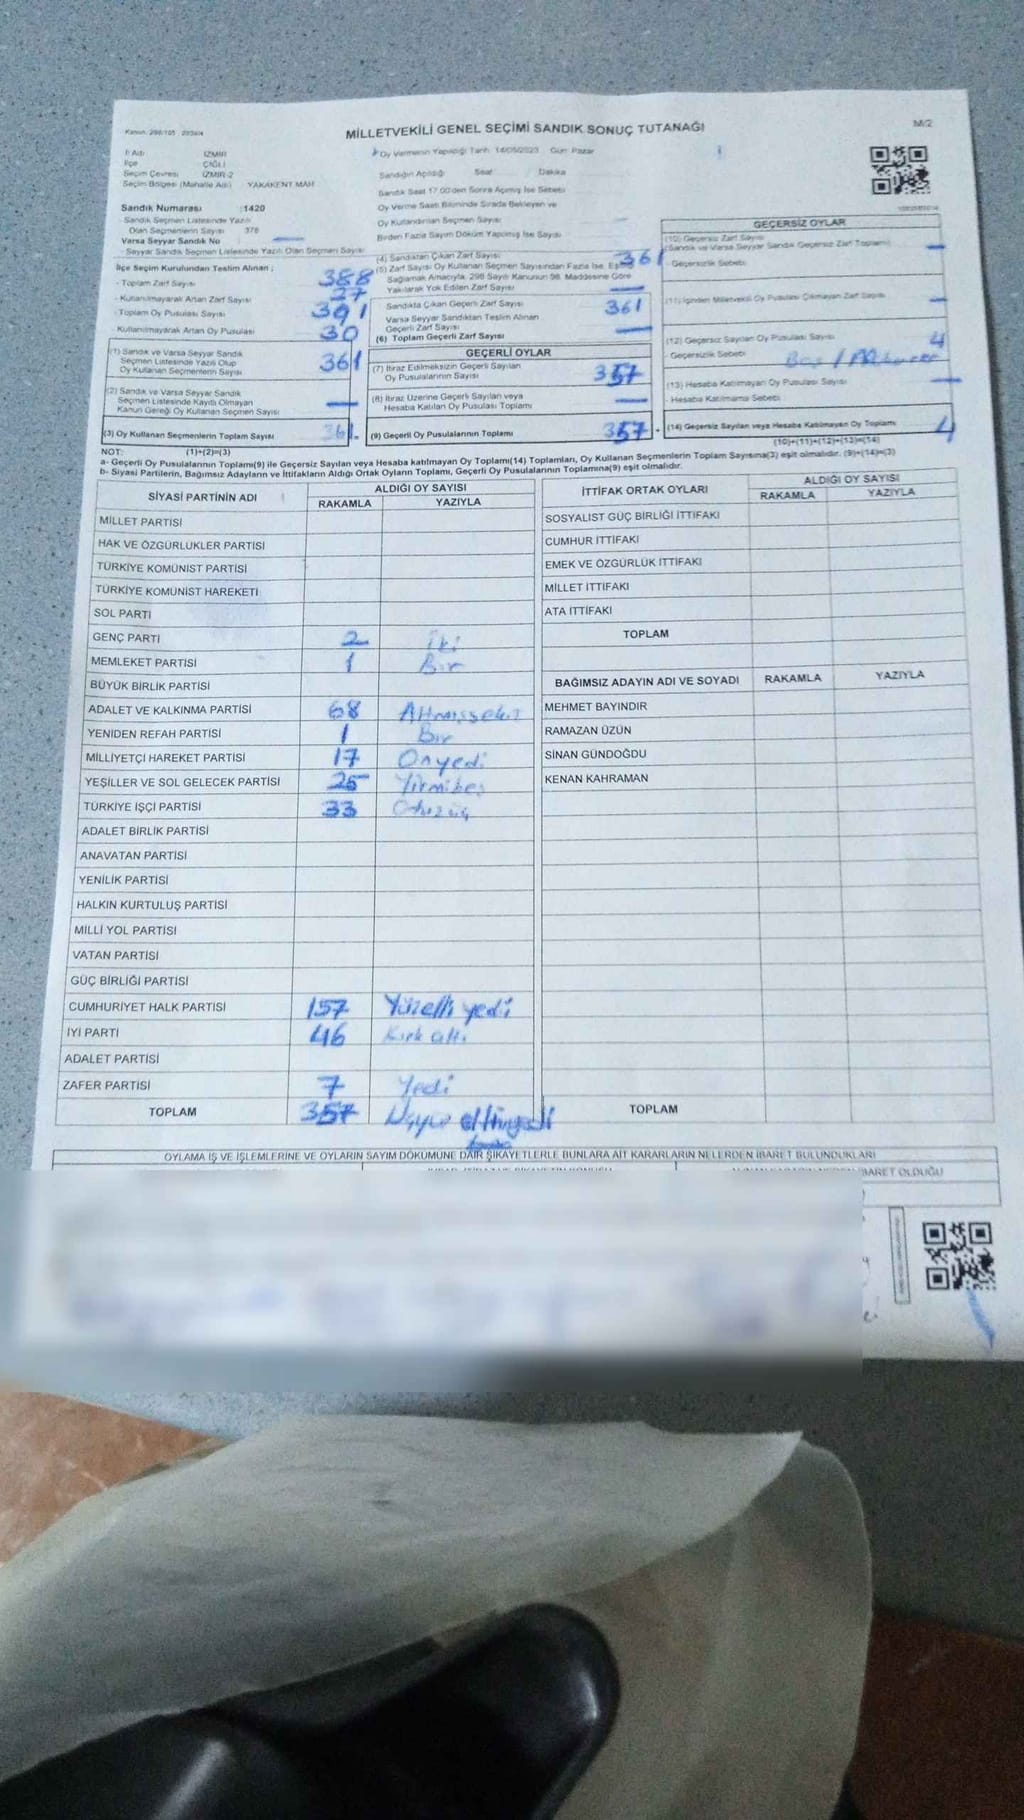 Kanun: 298/105 - 2034/4
MİLLETVEKİLİ GENEL SEÇİMİ SANDIK SONUÇ TUTANAĞI
M/2
İl Adı İZMİR
İlçe ÇİĞLİ
Seçim Çevresi İZMİR-2
Seçim Bölgesi (Mahalle Adı) YAKAKENT MAH
Oy Vermenin Yapıldığı Tarih: 14/05/2023 Gün: Pazar
Sandığın Açıldığı Saat Dakika
Sandık Saat 17:00'den Sonra Açılmış İse Sebebi
Oy Verme Saati Bitiminde Sırada Bekleyen ve
Oy Kullandırılan Seçmen Sayısı
Birden Fazla Sayım Döküm Yapılmış İse Sayısı
Sandık Numarası :1420
- Sandık Seçmen Listesinde Yazılı
Olan Seçmenlerin Sayısı 378
Varsa Seyyar Sandık No
- Seyyar Sandık Seçmen Listesinde Yazılı Olan Seçmen Sayısı
İlçe Seçim Kurulundan Teslim Alınan ;
- Toplam Zarf Sayısı 388
- Kullanılmayarak Artan Zarf Sayısı 27
- Toplam Oy Pusulası Sayısı 391
- Kullanılmayarak Artan Oy Pusulası 30
(1) Sandık ve Varsa Seyyar Sandık
Seçmen Listesinde Yazılı Olup
Oy Kullanan Seçmenlerin Sayısı 361
(2) Sandık ve Varsa Seyyar Sandık
Seçmen Listesinde Kayıtlı Olmayan
Kanun Gereği Oy Kullanan Seçmen Sayısı
(3) Oy Kullanan Seçmenlerin Toplam Sayısı 361
(4) Sandıktan Çıkan Zarf Sayısı 361
(5) Zarf Sayısı Oy Kullanan Seçmen Sayısından Fazla İse, Eşitliği
Sağlamak Amacıyla, 298 Sayılı Kanunun 98. Maddesine Göre
Yakılarak Yok Edilen Zarf Sayısı
Sandıkta Çıkan Geçerli Zarf Sayısı 361
Varsa Seyyar Sandıktan Teslim Alınan
Geçerli Zarf Sayısı
(6) Toplam Geçerli Zarf Sayısı
GEÇERLİ OYLAR
(7) İtiraz Edilmeksizin Geçerli Sayılan
Oy Pusulalarının Sayısı 357
(8) İtiraz Üzerine Geçerli Sayılan veya
Hesaba Katılan Oy Pusulası Toplamı
(9) Geçerli Oy Pusulalarının Toplamı 357
GEÇERSİZ OYLAR
(10) Geçersiz Zarf Sayısı
(Sandık ve Varsa Seyyar Sandık Geçersiz Zarf Toplamı)
- Geçersizlik Sebebi:
(11) İçinden Milletvekili Oy Pusulası Çıkmayan Zarf Sayısı
(12) Geçersiz Sayılan Oy Pusulası Sayısı 4
- Geçersizlik Sebebi Boş /
(13) Hesaba Katılmayan Oy Pusulası Sayısı
Hesaba Katılmama Sebebi
(14) Geçersiz Sayılan veya Hesaba Katılmayan Oy Toplamı 4
(10)+(11)+(12)+(13)=(14)
NOT: (1)+(2)=(3)
a- Geçerli Oy Pusulalarının Toplamı(9) ile Geçersiz Sayılan veya Hesaba katılmayan Oy Toplamı(14) Toplamları, Oy Kullanan Seçmenlerin Toplam Sayısına(3) eşit olmalıdır. (9)+(14)=(3)
b- Siyasi Partilerin, Bağımsız Adayların ve İttifakların Aldığı Ortak Oyların Toplamı, Geçerli Oy Pusulalarının Toplamına(9) eşit olmalıdır.
SİYASİ PARTİNİN ADI ALDIĞI OY SAYISI
RAKAMLA YAZIYLA
MİLLET PARTİSİ
HAK VE ÖZGÜRLÜKLER PARTİSİ
TÜRKİYE KOMÜNİST PARTİSİ
TÜRKİYE KOMÜNİST HAREKETİ
SOL PARTİ
GENÇ PARTİ 2 İki
MEMLEKET PARTİSİ 1 Bir
BÜYÜK BİRLİK PARTİSİ
ADALET VE KALKINMA PARTİSİ 68 Altmışsekiz
YENİDEN REFAH PARTİSİ 1 Bir
MİLLİYETÇİ HAREKET PARTİSİ 17 Onyedi
YEŞİLLER VE SOL GELECEK PARTİSİ 25 Yirmibeş
TÜRKİYE İŞÇİ PARTİSİ 33 Otuzüç
ADALET BİRLİK PARTİSİ
ANAVATAN PARTİSİ
YENİLİK PARTİSİ
HALKIN KURTULUŞ PARTİSİ
MİLLİ YOL PARTİSİ
VATAN PARTİSİ
GÜÇ BİRLİĞİ PARTİSİ
CUMHURİYET HALK PARTİSİ 157 Yüzelli yedi
İYİ PARTİ 46 Kırk altı
ADALET PARTİSİ
ZAFER PARTİSİ 7 Yedi
TOPLAM 357 Üçyüz elliyedi
İTTİFAK ORTAK OYLARI ALDIĞI OY SAYISI
RAKAMLA YAZIYLA
SOSYALİST GÜÇ BİRLİĞİ İTTİFAKI
CUMHUR İTTİFAKI
EMEK VE ÖZGÜRLÜK İTTİFAKI
MİLLET İTTİFAKI
ATA İTTİFAKI
TOPLAM
BAĞIMSIZ ADAYIN ADI VE SOYADI RAKAMLA YAZIYLA
MEHMET BAYINDIR
RAMAZAN ÜZÜN
SİNAN GÜNDOĞDU
KENAN KAHRAMAN
TOPLAM
OYLAMA İŞ VE İŞLEMLERİNE VE OYLARIN SAYIM DÖKÜMÜNE DAİR ŞİKAYETLERLE BUNLARA AİT KARARLARIN NELERDEN İBARET BULUNDUKLARI
İBARET OLDUĞU